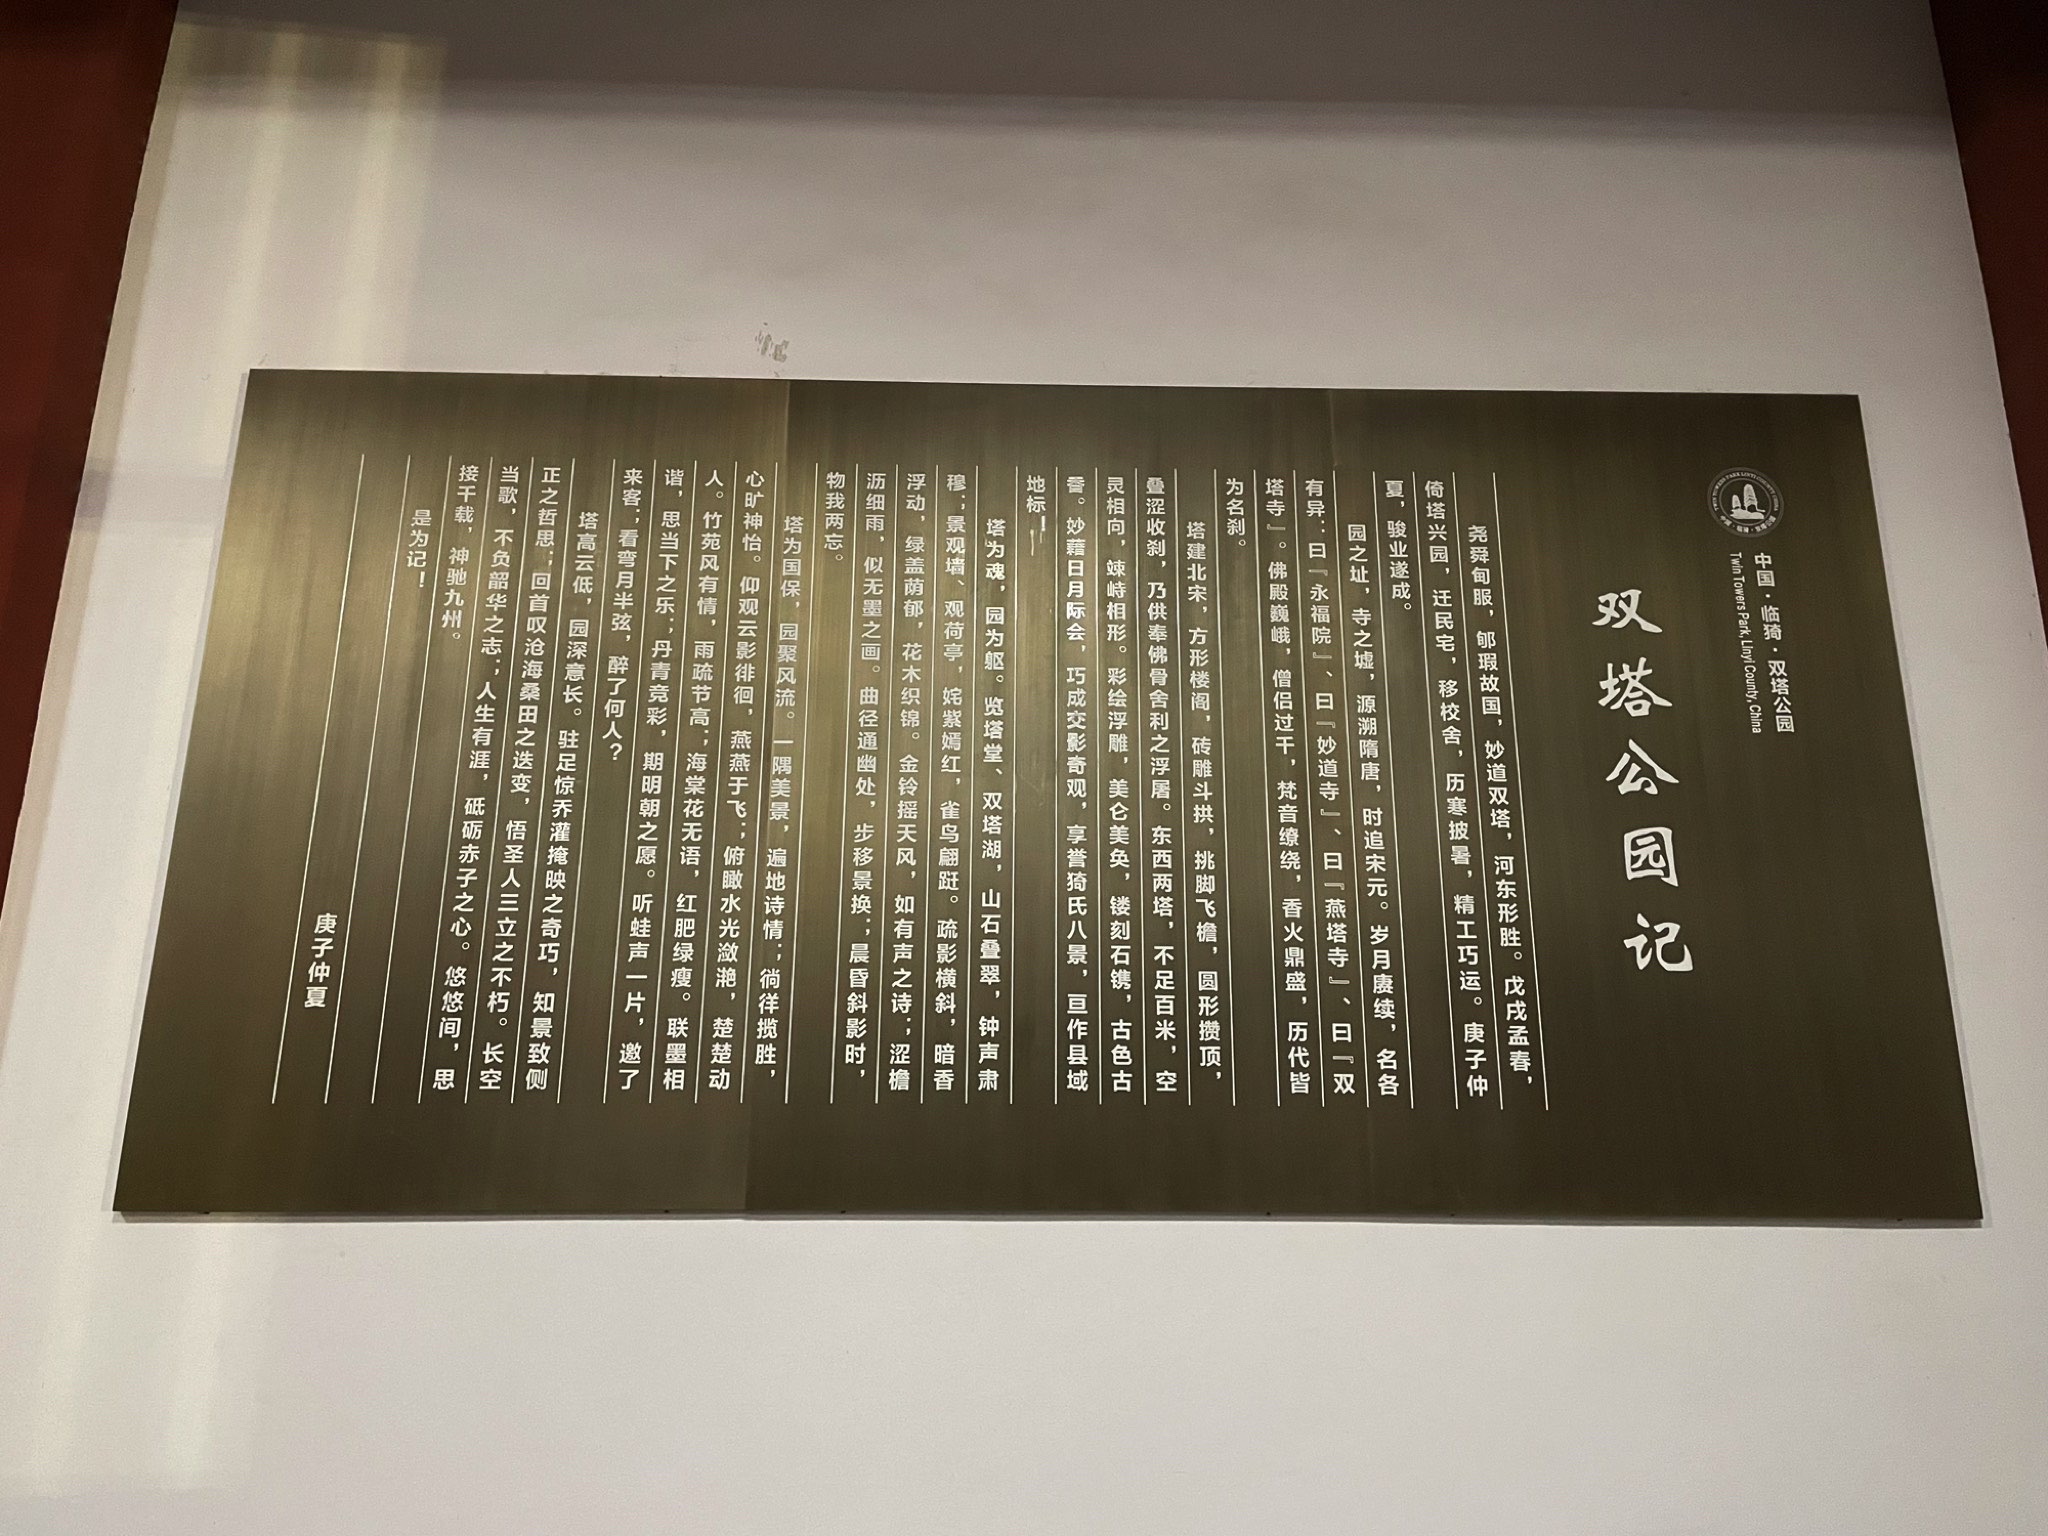 中国·临猗·双塔公园
Twin Towers Park, Linyi County, China
双塔公园记
尧舜甸服，郇瑕故国，妙道双塔，河东形胜。戊戌孟春，
倚塔兴园，迁民宅，移校舍，历寒披暑，精工巧运。庚子仲
夏，骏业遂成。
园之址，寺之墟，源溯隋唐，时追宋元。岁月赓续，名各
有异：曰『永福院』、曰『妙道寺』、曰『燕塔寺』、曰『双
塔寺』。佛殿巍峨，僧侣过千，梵音缭绕，香火鼎盛，历代皆
为名刹。
塔建北宋，方形楼阁，砖雕斗拱，挑脚飞檐，圆形攒顶，
叠涩收刹，乃供奉佛骨舍利之浮屠。东西两塔，不足百米，空
灵相向，竦峙相形。彩绘浮雕，美仑美奂，镂刻石镌，古色古
香。妙藉日月际会，巧成交影奇观，享誉猗氏八景，亘作县域
地标！
塔为魂，园为躯。览塔堂、双塔湖，山石叠翠，钟声肃
穆；景观墙、观荷亭，姹紫嫣红，雀鸟翩跹。疏影横斜，暗香
浮动，绿盖荫郁，花木织锦。金铃摇天风，如有声之诗；涩檐
沥细雨，似无墨之画。曲径通幽处，步移景换；晨昏斜影时，
物我两忘。
塔为国保，园聚风流。一隅美景，遍地诗情；徜徉揽胜，
心旷神怡。仰观云影徘徊，燕燕于飞；俯瞰水光潋滟，楚楚动
人。竹苑风有情，雨疏节高；海棠花无语，红肥绿瘦。联墨相
谐，思当下之乐；丹青竞彩，期明朝之愿。听蛙声一片，邀了
来客；看弯月半弦，醉了何人？
塔高云低，园深意长。驻足惊乔灌掩映之奇巧，知景致侧
正之哲思；回首叹沧海桑田之迭变，悟圣人三立之不朽。长空
当歌，不负韶华之志；人生有涯，砥砺赤子之心。悠悠间，思
接千载，神驰九州。
是为记！
庚子仲夏